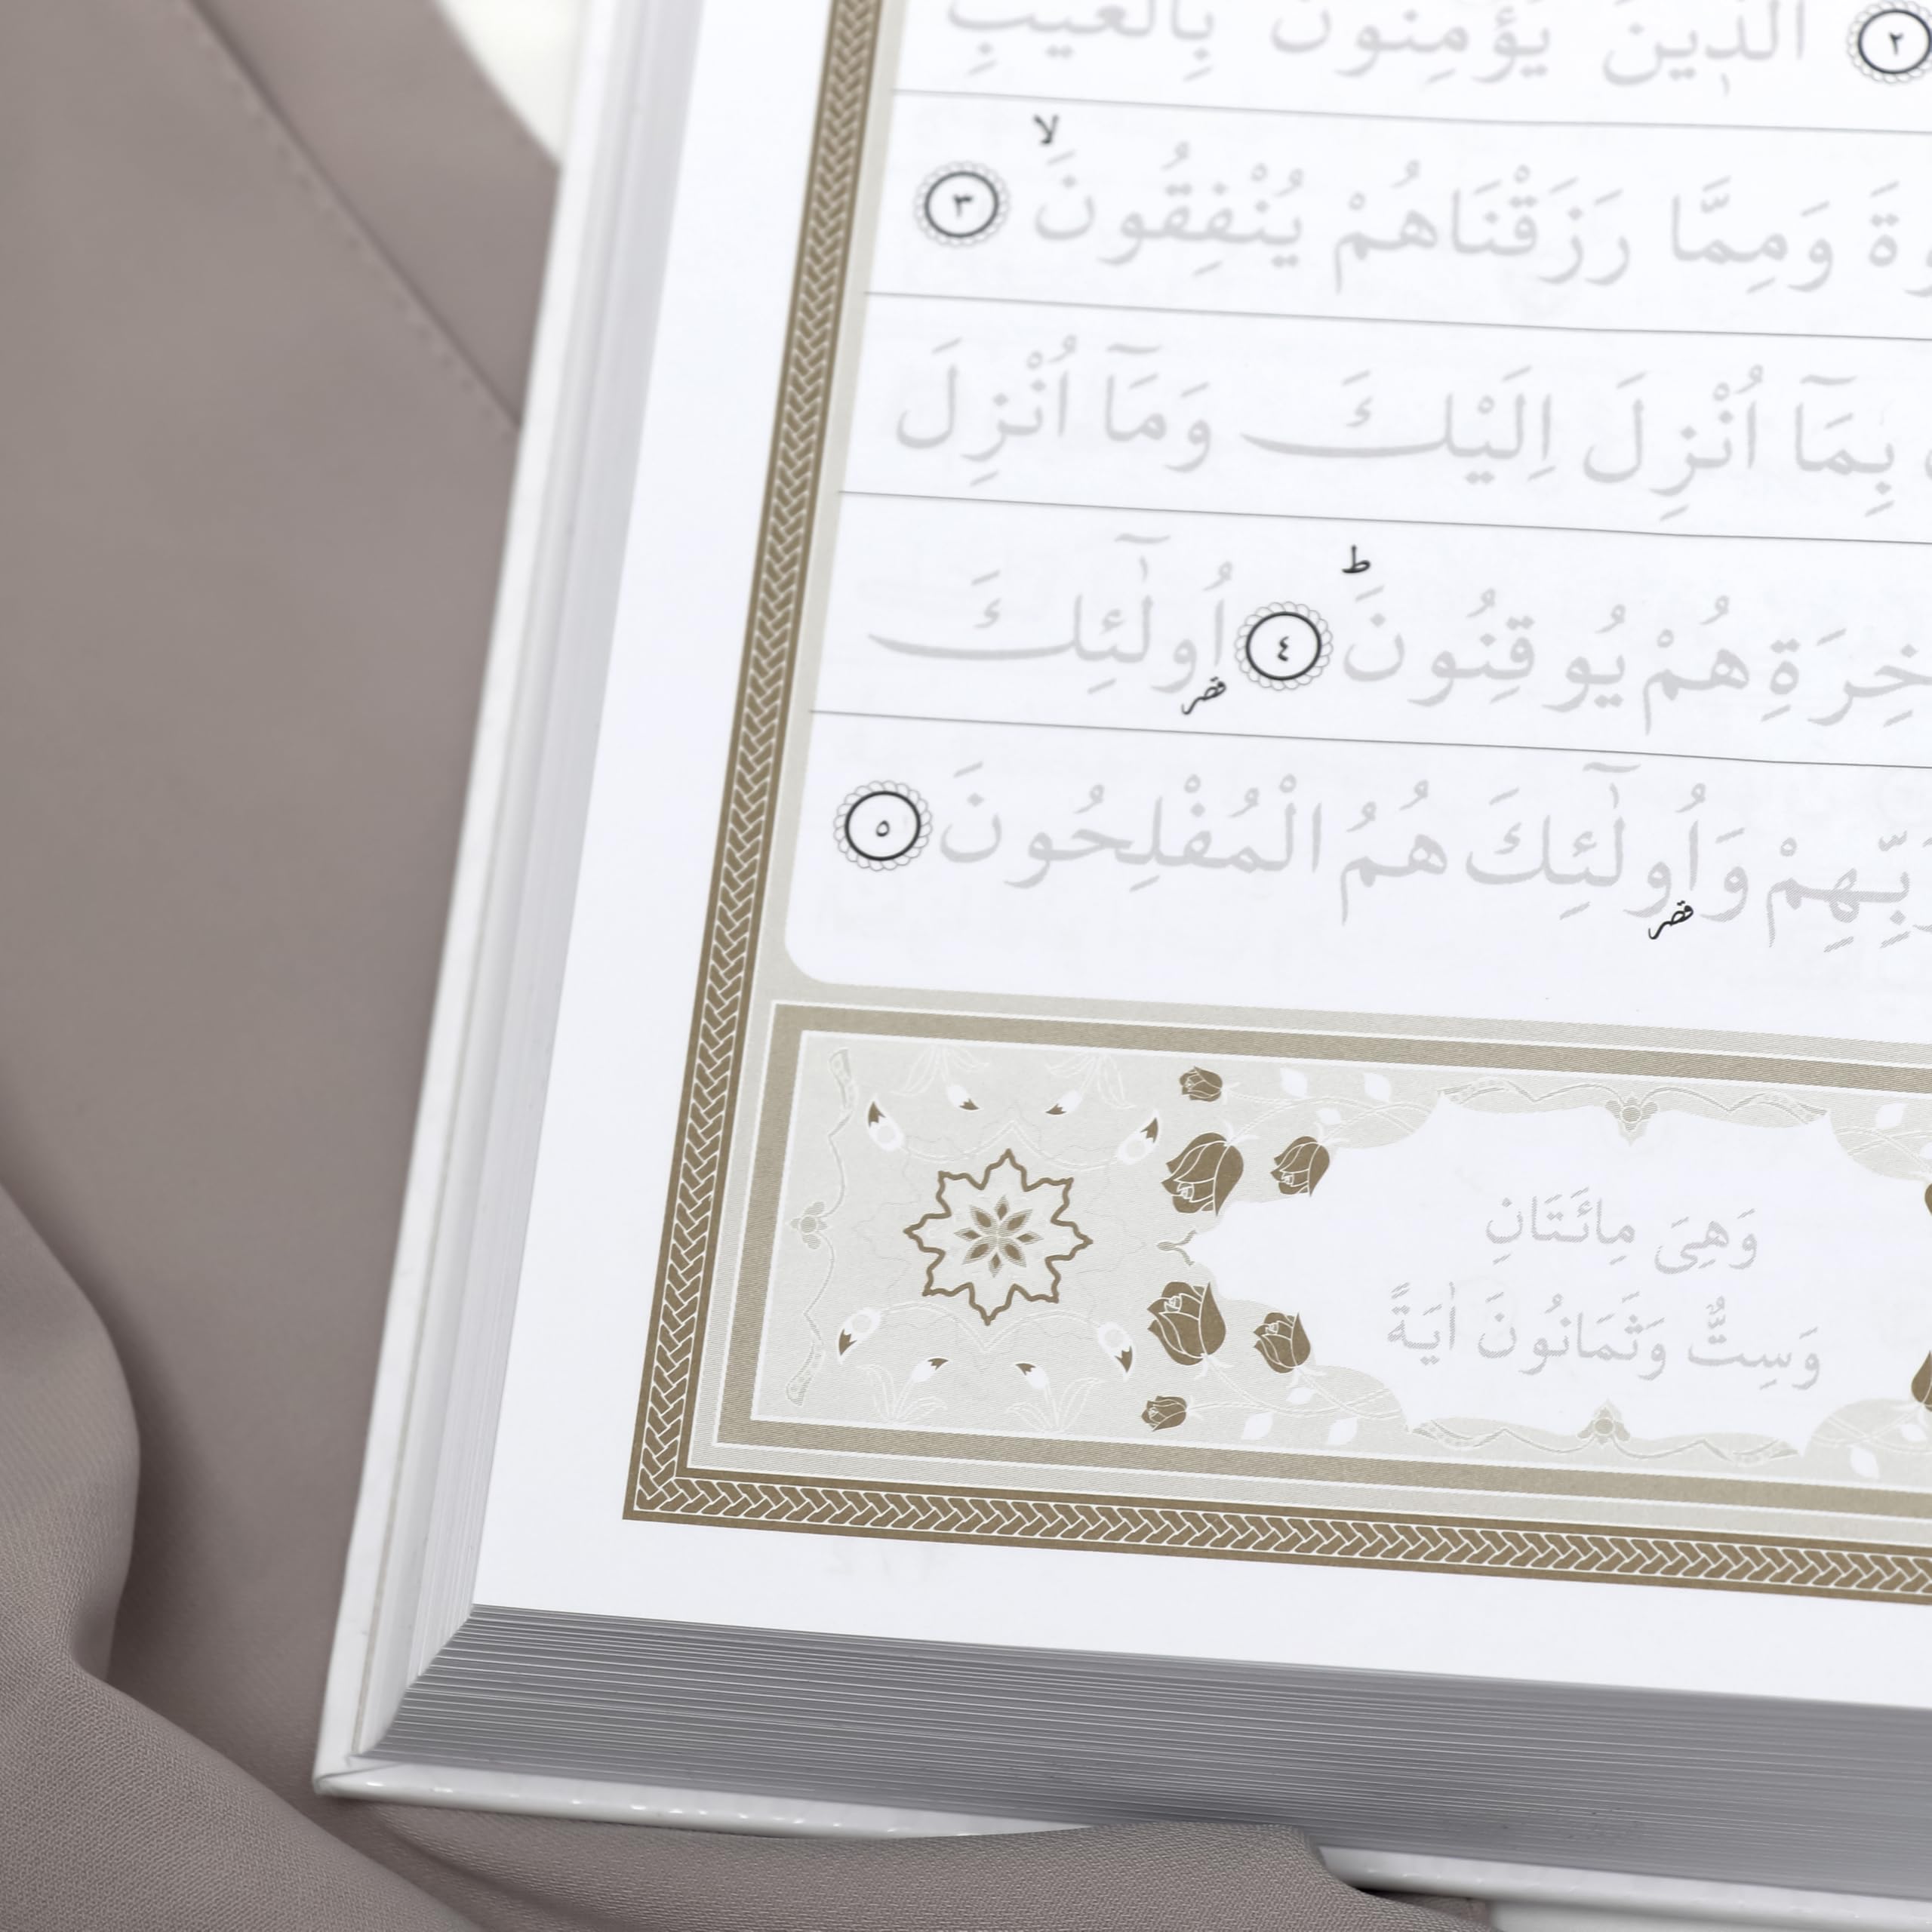 ٢ الَّذِينَ يُؤْمِنُونَ بِالْغَيْبِ
وَمِمَّا رَزَقْنَاهُمْ يُنْفِقُونَۙ ٣
بِمَٓا اُنْزِلَ اِلَيْكَ وَمَٓا اُنْزِلَ
هُمْ يُوقِنُونَۜ ٤ اُو۬لٰٓئِكَ
رَبِّهِمْ وَاُو۬لٰٓئِكَ هُمُ الْمُفْلِحُونَ ٥
وَهِىَ مِائَتَانِ
وَسِتٌّ وَثَمَانُونَ اٰيَةً